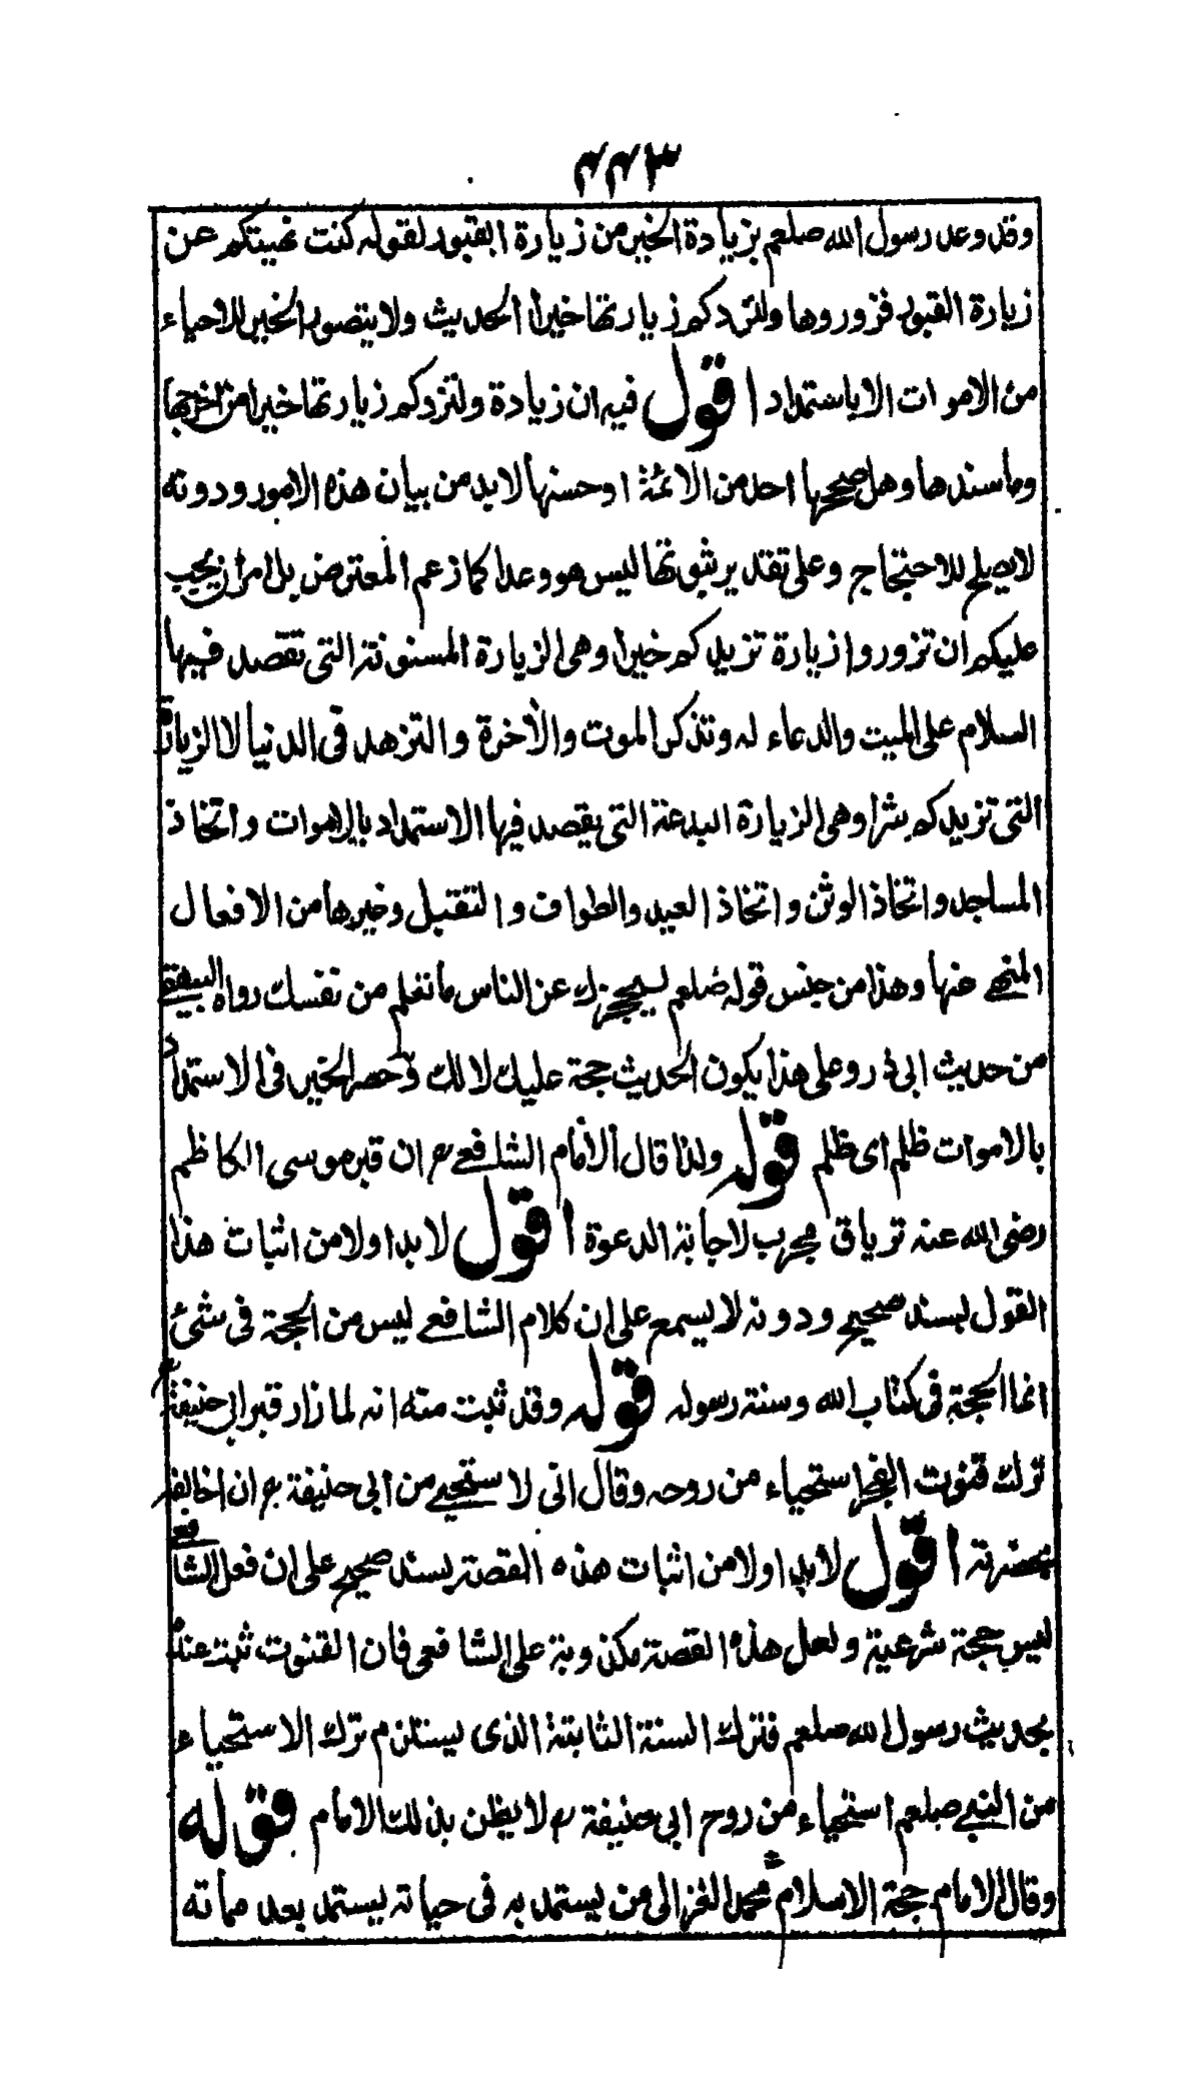 ٣٤٣
وقد وعد رسول الله صلعم بزيادة الخير من زيارة القبور لقوله كنت نهيتكم عن
زيارة القبور فزوروها ولتزدكم زيارتها خيرا الحديث ولا يتصور الخير للاحياء
من الاموات الا باستمداد اقول فيه ان زيادة ولتزدكم زيارتها خيرا من اخرجها
وما سندها وهل صححها احد من الائمة او حسنها لابد من بيان هذه الامور ودونه
لا يصلح للاحتجاج وعلى تقدير ثبوتها ليس هو وعدا كما زعم المعترض بل امر ان يجب
عليكم ان تزوروا زيارة تزيدكم خيرا وهى الزيارة المسنونة التى تقصد فيها
السلام على الميت والدعاء له وتذكر الموت والآخرة والتزهد فى الدنيا لا الزيارة
التى تزيدكم شرا وهى الزيارة البدعة التى يقصد فيها الاستمداد بالاموات واتخاذ
المساجد واتخاذ الوثن واتخاذ العيد والطواف والتقبيل وغيرها من الافعال
المنهى عنها وهذا من جنس قوله صلعم ليحجزك عن الناس ما تعلم من نفسك رواه البيهقى
من حديث ابى ذر وعلى هذا يكون الحديث حجة عليك لا لك وحصر الخير فى الاستمداد
بالاموات ظلم اى ظلم قوله ولذا قال الامام الشافعى رح ان قبر موسى الكاظم
رضى الله عنه ترياق مجرب لاجابة الدعوة اقول لا بد اولا من اثبات هذا
القول بسند صحيح ودونه لا يسمع على ان كلام الشافعى ليس من الحجة فى شىء
انما الحجة فى كتاب الله وسنة رسوله قوله وقد ثبت منه انه لما زار قبر ابى حنيفة رح
ترك قنوت الفجر استحياء من روحه وقال انى لاستحيى من ابى حنيفة رح ان اخالفه
بحضرته اقول لا بد اولا من اثبات هذه القصة بسند صحيح على ان فعل الشافعى
ليس حجة شرعية ولعل هذه القصة مكذوبة على الشافعى فان القنوت ثبت عنده
بحديث رسول الله صلعم فترك السنة الثابتة الذى يستلزم ترك الاستحياء
من النبى صلعم استحياء من روح ابى حنيفة رح لا يظن بذلك الامام فقوله
وقال الامام حجة الاسلام محمد الغزالى من يستمد به فى حياته يستمد بعد مماته